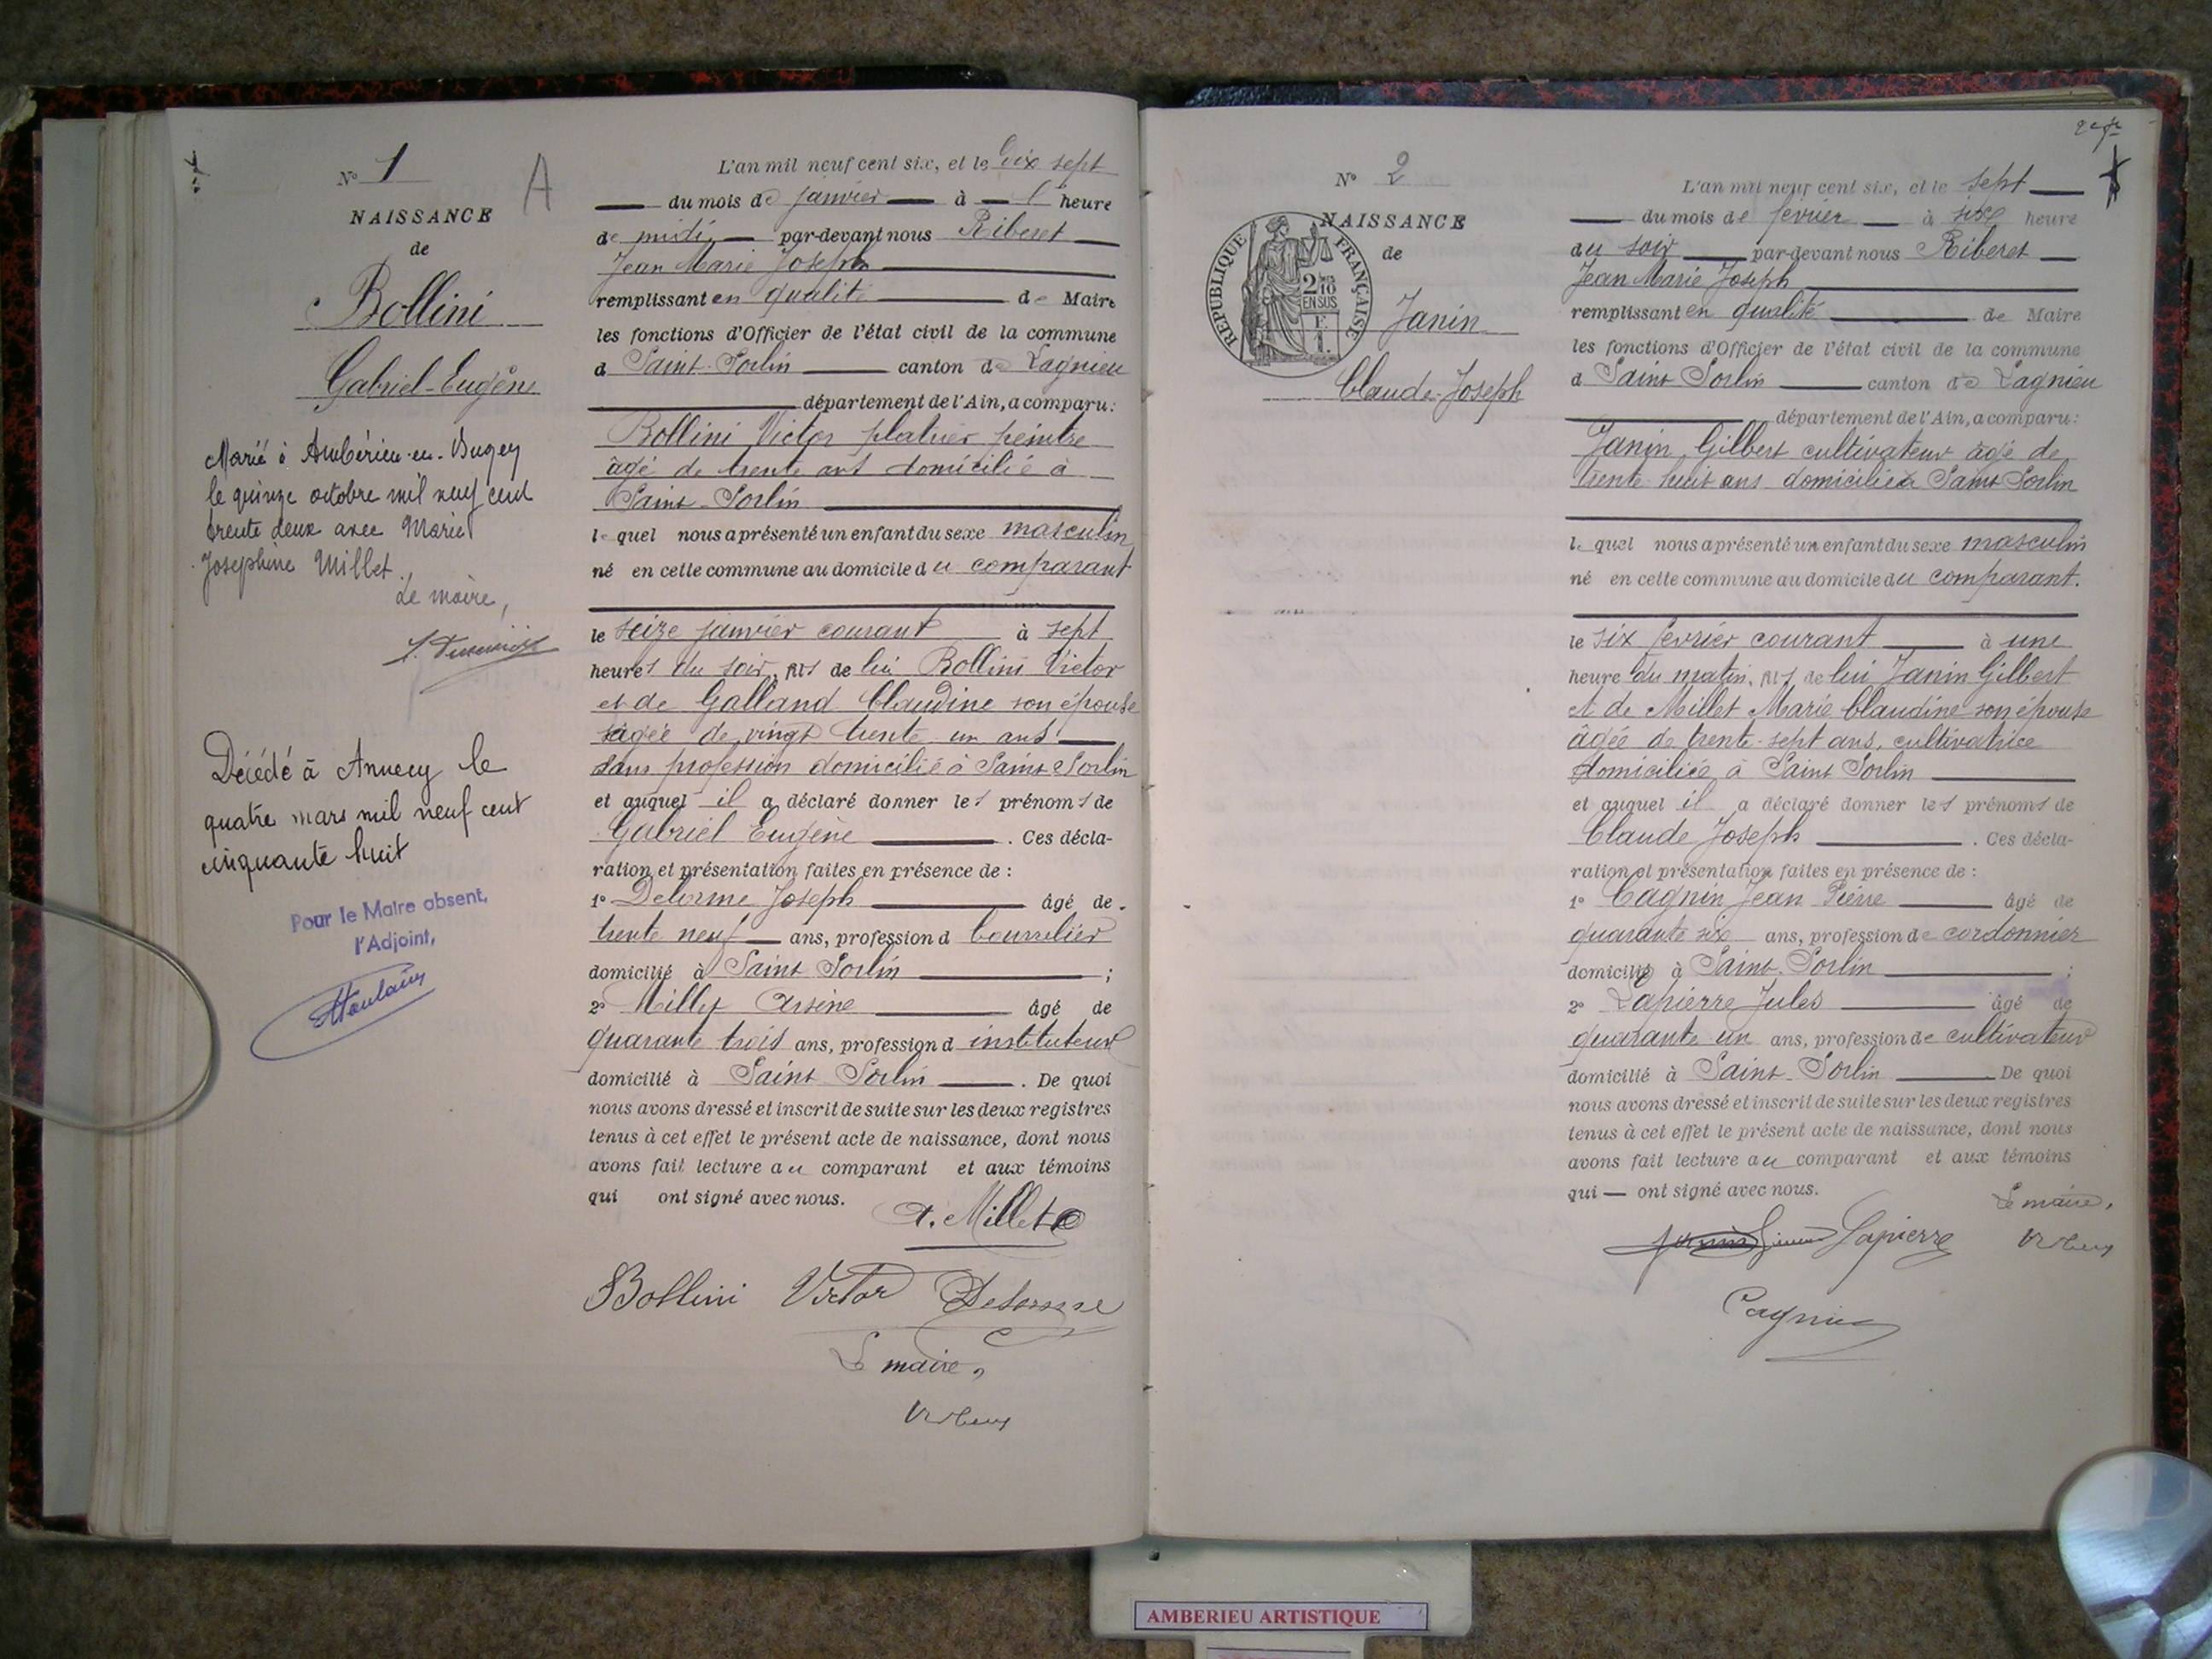 Nº 1
A
NAISSANCE
de
Bollini
Gabriel-Eugène
Marié à Ambérieu-en-Bugey
le quinze octobre mil neuf cent
trente deux avec Marie
Josephine Millet.
Le maire,
Décédé à Annecy le
quatre mars mil neuf cent
cinquante huit
Pour le Maire absent,
l'Adjoint,
L'an mil neuf cent six, et le dix sept
du mois de janvier à 1 heure
de midi par-devant nous Riberet
Jean Marie Joseph
remplissant en qualité de Maire
les fonctions d'Officier de l'état civil de la commune
d Saint-Sorlin canton de Lagnieu
département de l'Ain, a comparu:
Bollini Victor platrier peintre
âgé de trente ans domicilié à
Saint-Sorlin
le quel nous a présenté un enfant du sexe masculin
né en cette commune au domicile du comparant
le seize janvier courant à sept
heures du soir, fils de lui Bollini Victor
et de Galland Claudine son épouse
âgée de vingt trente un ans
sans profession domicilié à Saint Sorlin
et auquel il a déclaré donner les prénoms de
Gabriel Eugène . Ces décla-
ration et présentation faites en présence de :
1º Delorme Joseph âgé de
trente neuf ans, profession d bourrelier
domicilié à Saint Sorlin ;
2º Millet Arsène âgé de
quarante trois ans, profession d instituteur
domicilié à Saint Sorlin . De quoi
nous avons dressé et inscrit de suite sur les deux registres
tenus à cet effet le présent acte de naissance, dont nous
avons fait lecture au comparant et aux témoins
qui ont signé avec nous.
A. Millet
Bollini Victor Delorme
Le maire,
Nº 2
NAISSANCE
de
RÉPUBLIQUE FRANÇAISE
2/10
EN SUS
Janin
Claude-Joseph
L'an mil neuf cent six, et le sept
du mois de février à six heure
du soir par-devant nous Riberet
Jean Marie Joseph
remplissant en qualité de Maire
les fonctions d'Officier de l'état civil de la commune
d Saint Sorlin canton de Lagnieu
département de l'Ain, a comparu:
Janin Gilbert cultivateur âgé de
trente huit ans domicilié à Saint Sorlin
le quel nous a présenté un enfant du sexe masculin
né en cette commune au domicile du comparant.
le six février courant à une
heure du matin, fils de lui Janin Gilbert
et de Millet Marie Claudine son épouse
âgée de trente-sept ans, cultivatrice
domiciliée à Saint Sorlin
et auquel il a déclaré donner les prénoms de
Claude Joseph . Ces décla-
ration et présentation faites en présence de :
1º Cagnin Jean Pierre âgé de
quarante six ans, profession de cordonnier
domicilié à Saint-Sorlin ;
2º Lapierre Jules âgé de
quarante un ans, profession de cultivateur
domicilié à Saint-Sorlin . De quoi
nous avons dressé et inscrit de suite sur les deux registres
tenus à cet effet le présent acte de naissance, dont nous
avons fait lecture au comparant et aux témoins
qui — ont signé avec nous.
Le maire,
Lapierre
Cagnin
AMBERIEU ARTISTIQUE